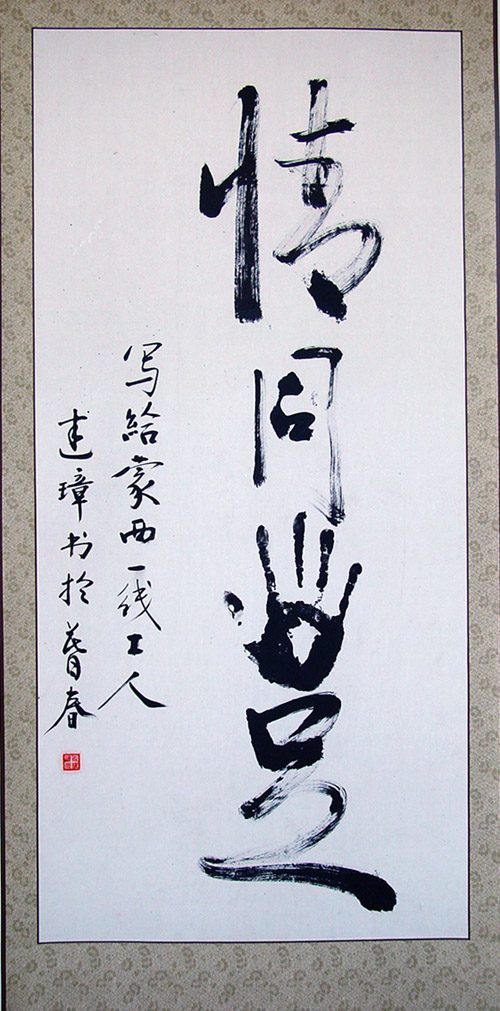 情同足
写給蒙西一线工人
建璋书於暮春